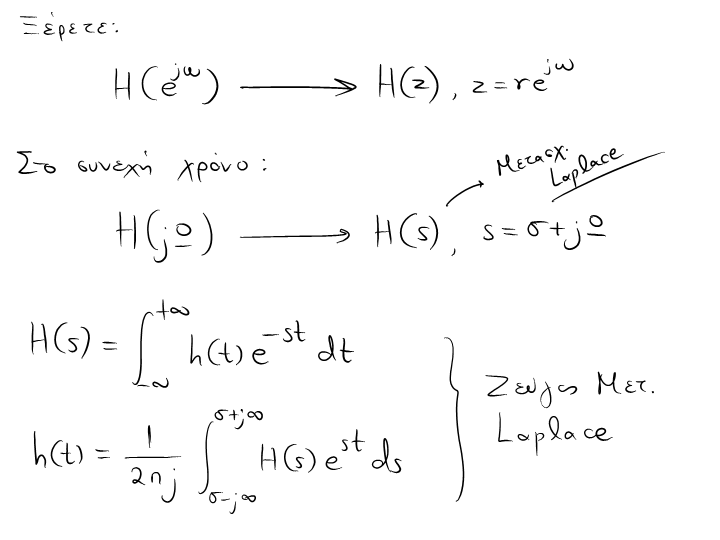 Ξέρετε:
H(e^{jω}) ⟶ H(z), z = re^{jω}
Στο συνεχή χρόνο:
Μετασχ. Laplace
H(jΩ) ⟶ H(s), s = σ + jΩ
H(s) = ∫_{-∞}^{+∞} h(t) e^{-st} dt
h(t) = \frac{1}{2πj} ∫_{σ-j∞}^{σ+j∞} H(s) e^{st} ds
Ζεύγος Μετ.
Laplace